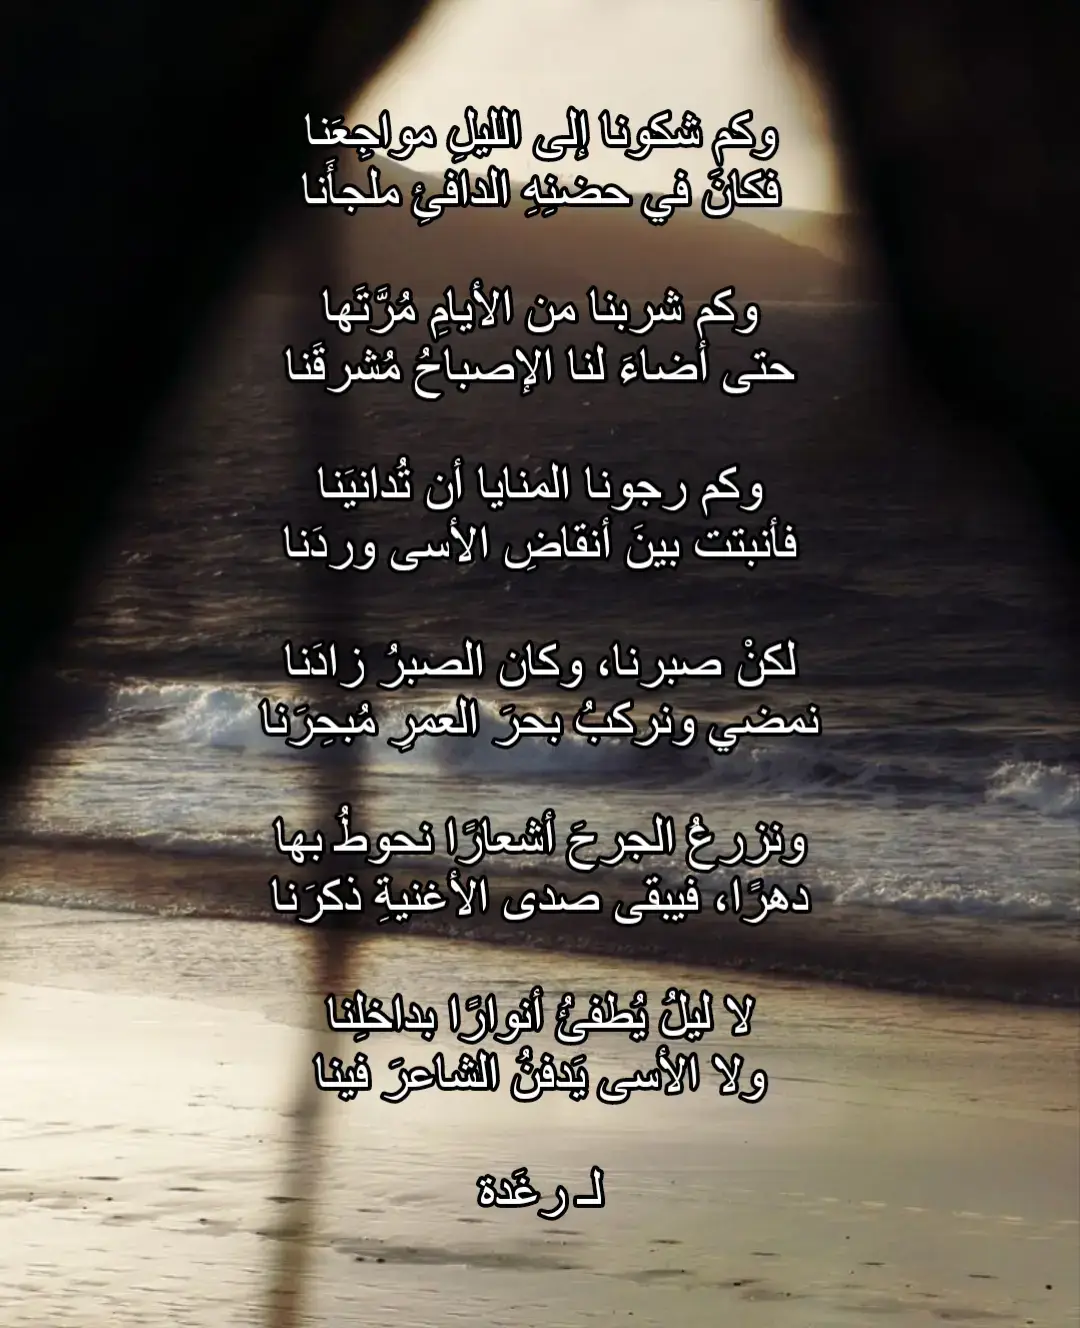 وكم شكونا إلى الليلِ مواجِعَنا
فكانَ في حضنِهِ الدافئِ ملجأَنا
وكم شربنا من الأيامِ مُرَّتَها
حتى أضاءَ لنا الإصباحُ مُشرقَنا
وكم رجونا المَنايا أن تُدانيَنا
فأنبتت بينَ أنقاضِ الأسى وردَنا
لكنْ صبرنا، وكان الصبرُ زادَنا
نمضي ونركبُ بحرَ العمرِ مُبحِرَنا
ونزرعُ الجرحَ أشعارًا نحوطُ بها
دهرًا، فيبقى صدى الأغنيةِ ذكرَنا
لا ليلُ يُطفئُ أنوارًا بداخلِنا
ولا الأسى يَدفنُ الشاعرَ فينا
لـ رغَدة